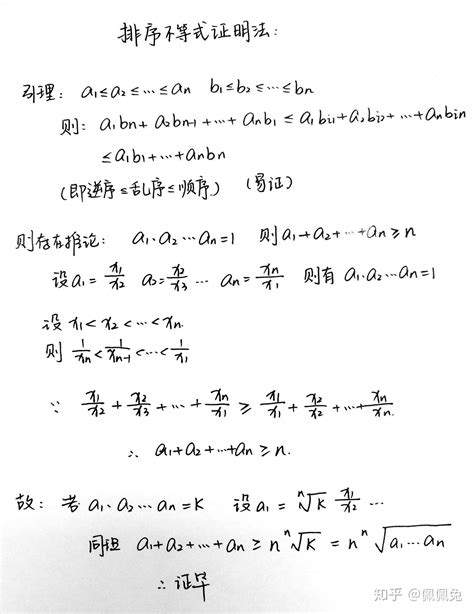 排序不等式证明法：
引理： a₁≤a₂≤…≤aₙ b₁≤b₂≤…≤bₙ
则： a₁bₙ+a₂bₙ₋₁+…+aₙb₁ ≤ a₁bᵢ₁+a₂bᵢ₂+…+aₙbᵢₙ
≤a₁b₁+…+aₙbₙ
(即逆序≤乱序≤顺序) (易证)
则存在推论： a₁·a₂…aₙ=1 则a₁+a₂+…+aₙ≥n
设a₁=x₁/x₂ a₂=x₂/x₃ … aₙ=xₙ/x₁ 则有 a₁·a₂…aₙ=1
设 x₁<x₂<…<xₙ.
则 1/xₙ<1/xₙ₋₁<…<1/x₁
∵ x₁/x₂+x₂/x₃+…+xₙ/x₁ ≥ x₁/x₁+x₂/x₂+…+xₙ/xₙ.
∴ a₁+a₂+…+aₙ≥n.
故： 若 a₁·a₂…aₙ=K 设a₁=ⁿ√K x₁/x₂ …
同理 a₁+a₂+…+aₙ ≥ n ⁿ√K = n ⁿ√a₁…aₙ
∴证毕
知乎 @佩佩兔